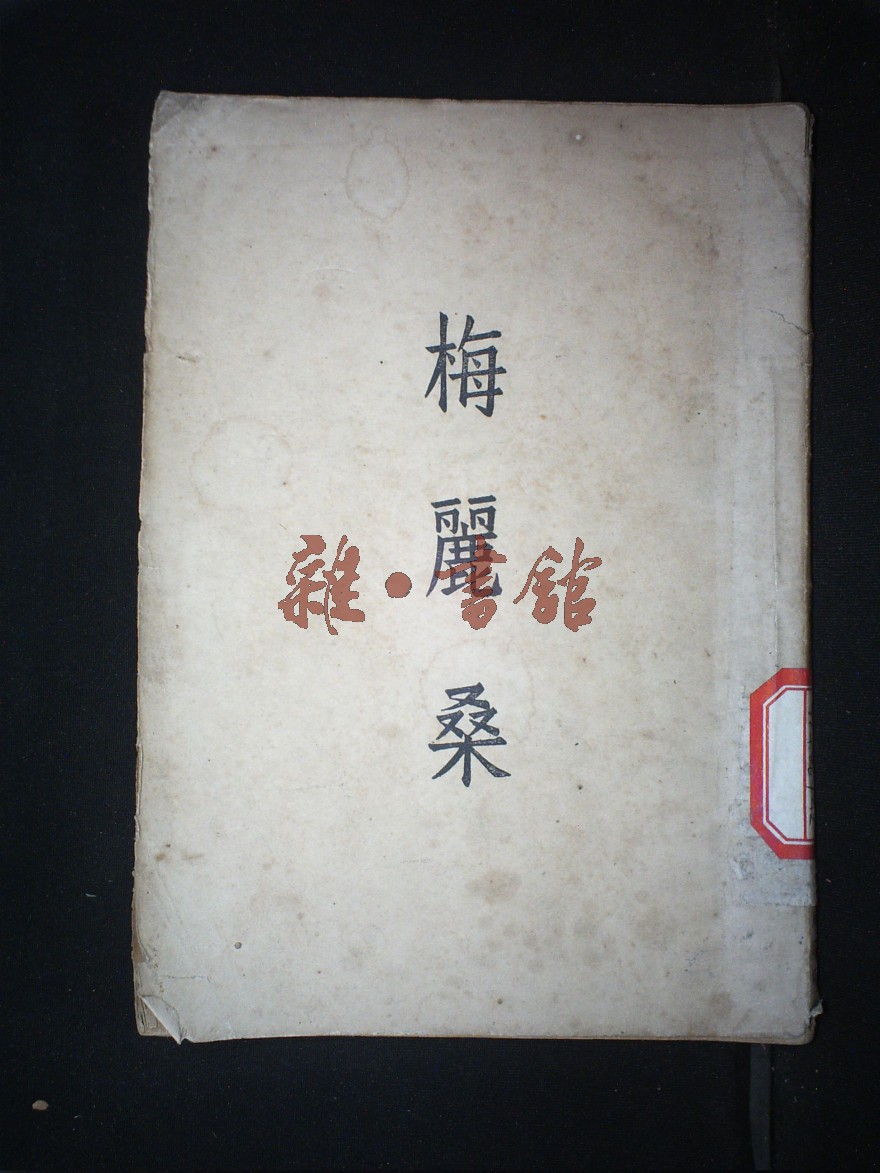 梅麗桑
雜·書館